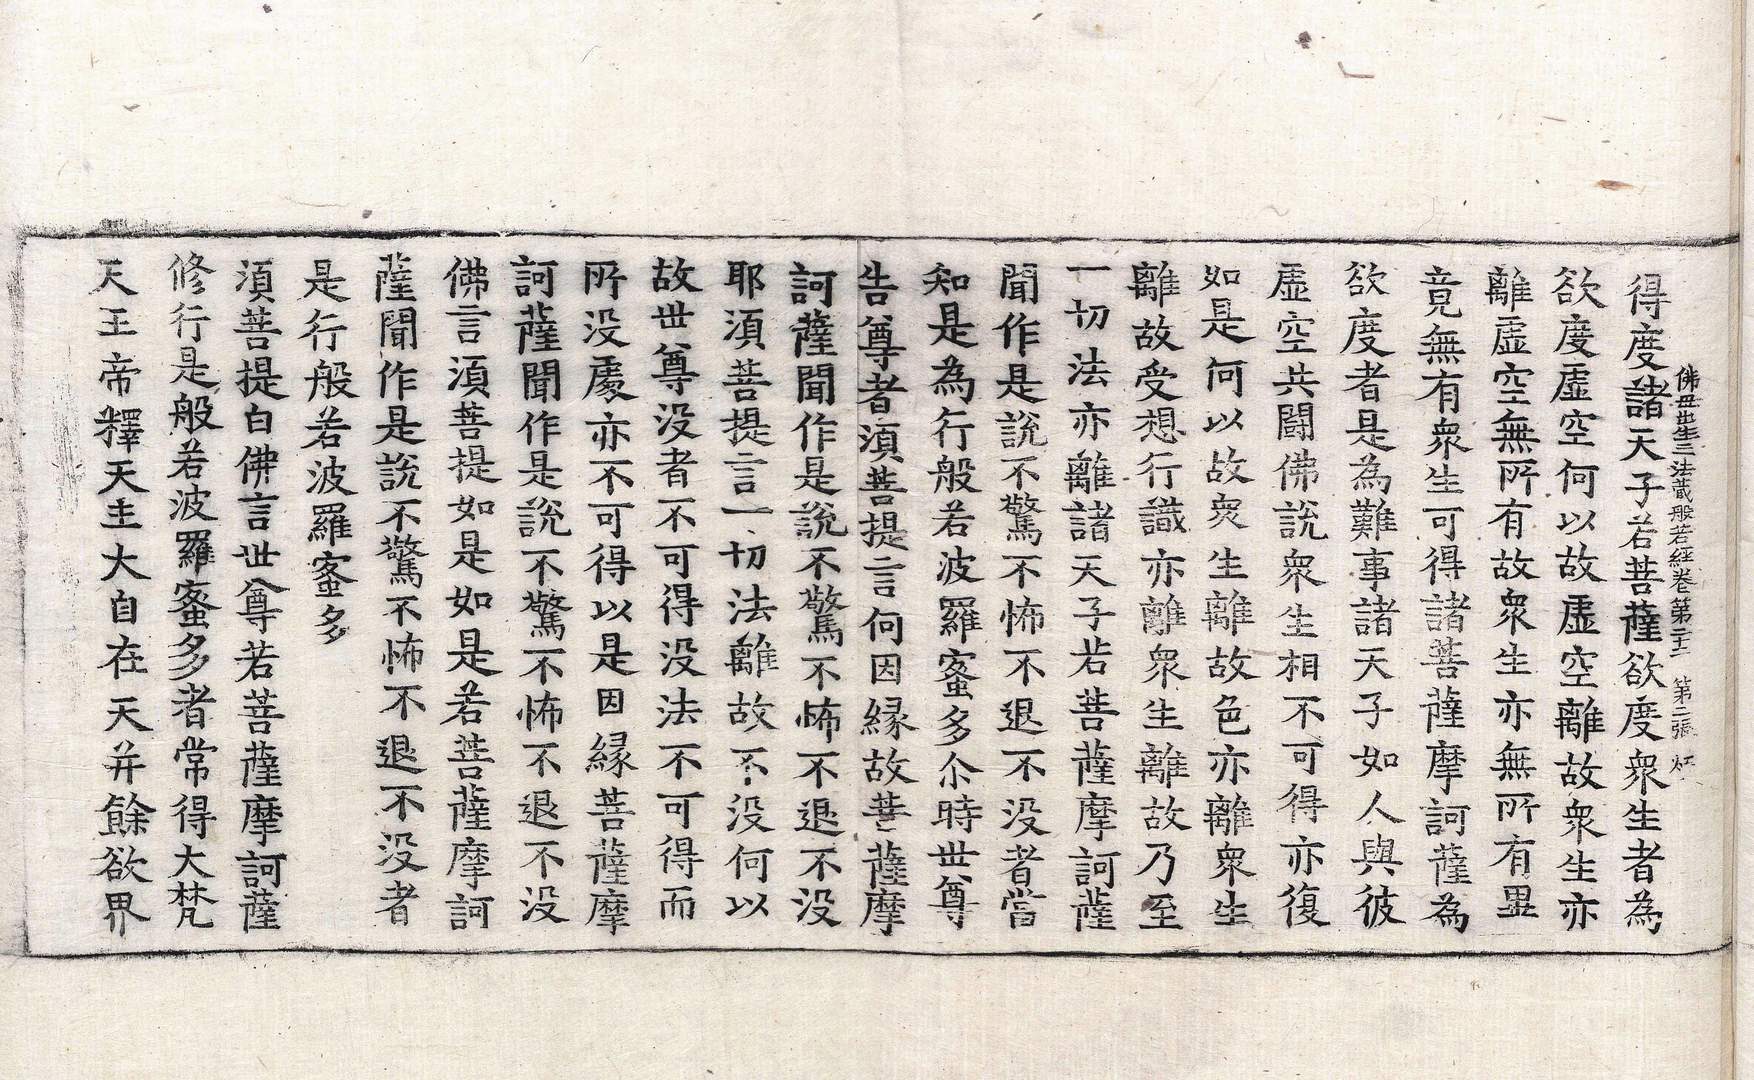 佛母出生三法藏般若經卷第二十二 第二張
得度諸天子若菩薩欲度衆生者為
欲度虛空何以故虛空離故衆生亦
離虛空無所有故衆生亦無所有畢
竟無有衆生可得諸菩薩摩訶薩為
欲度者是為難事諸天子如人與彼
虛空共鬪佛說衆生相不可得亦復
如是何以故衆生離故色亦離衆生
離故受想行識亦離衆生離故乃至
一切法亦離諸天子若菩薩摩訶薩
聞作是說不驚不怖不退不没者當
知是為行般若波羅蜜多尒時世尊
告尊者湏菩提言何因緣故菩薩摩
訶薩聞作是說不驚不怖不退不没
耶湏菩提言一切法離故不没何以
故世尊没者不可得没法不可得而
所没處亦不可得以是因緣菩薩摩
訶薩聞作是說不驚不怖不退不没
佛言湏菩提如是如是若菩薩摩訶
薩聞作是說不驚不怖不退不没者
是行般若波羅蜜多
湏菩提白佛言世尊若菩薩摩訶薩
修行是般若波羅蜜多者常得大梵
天王帝釋天主大自在天并餘欲界